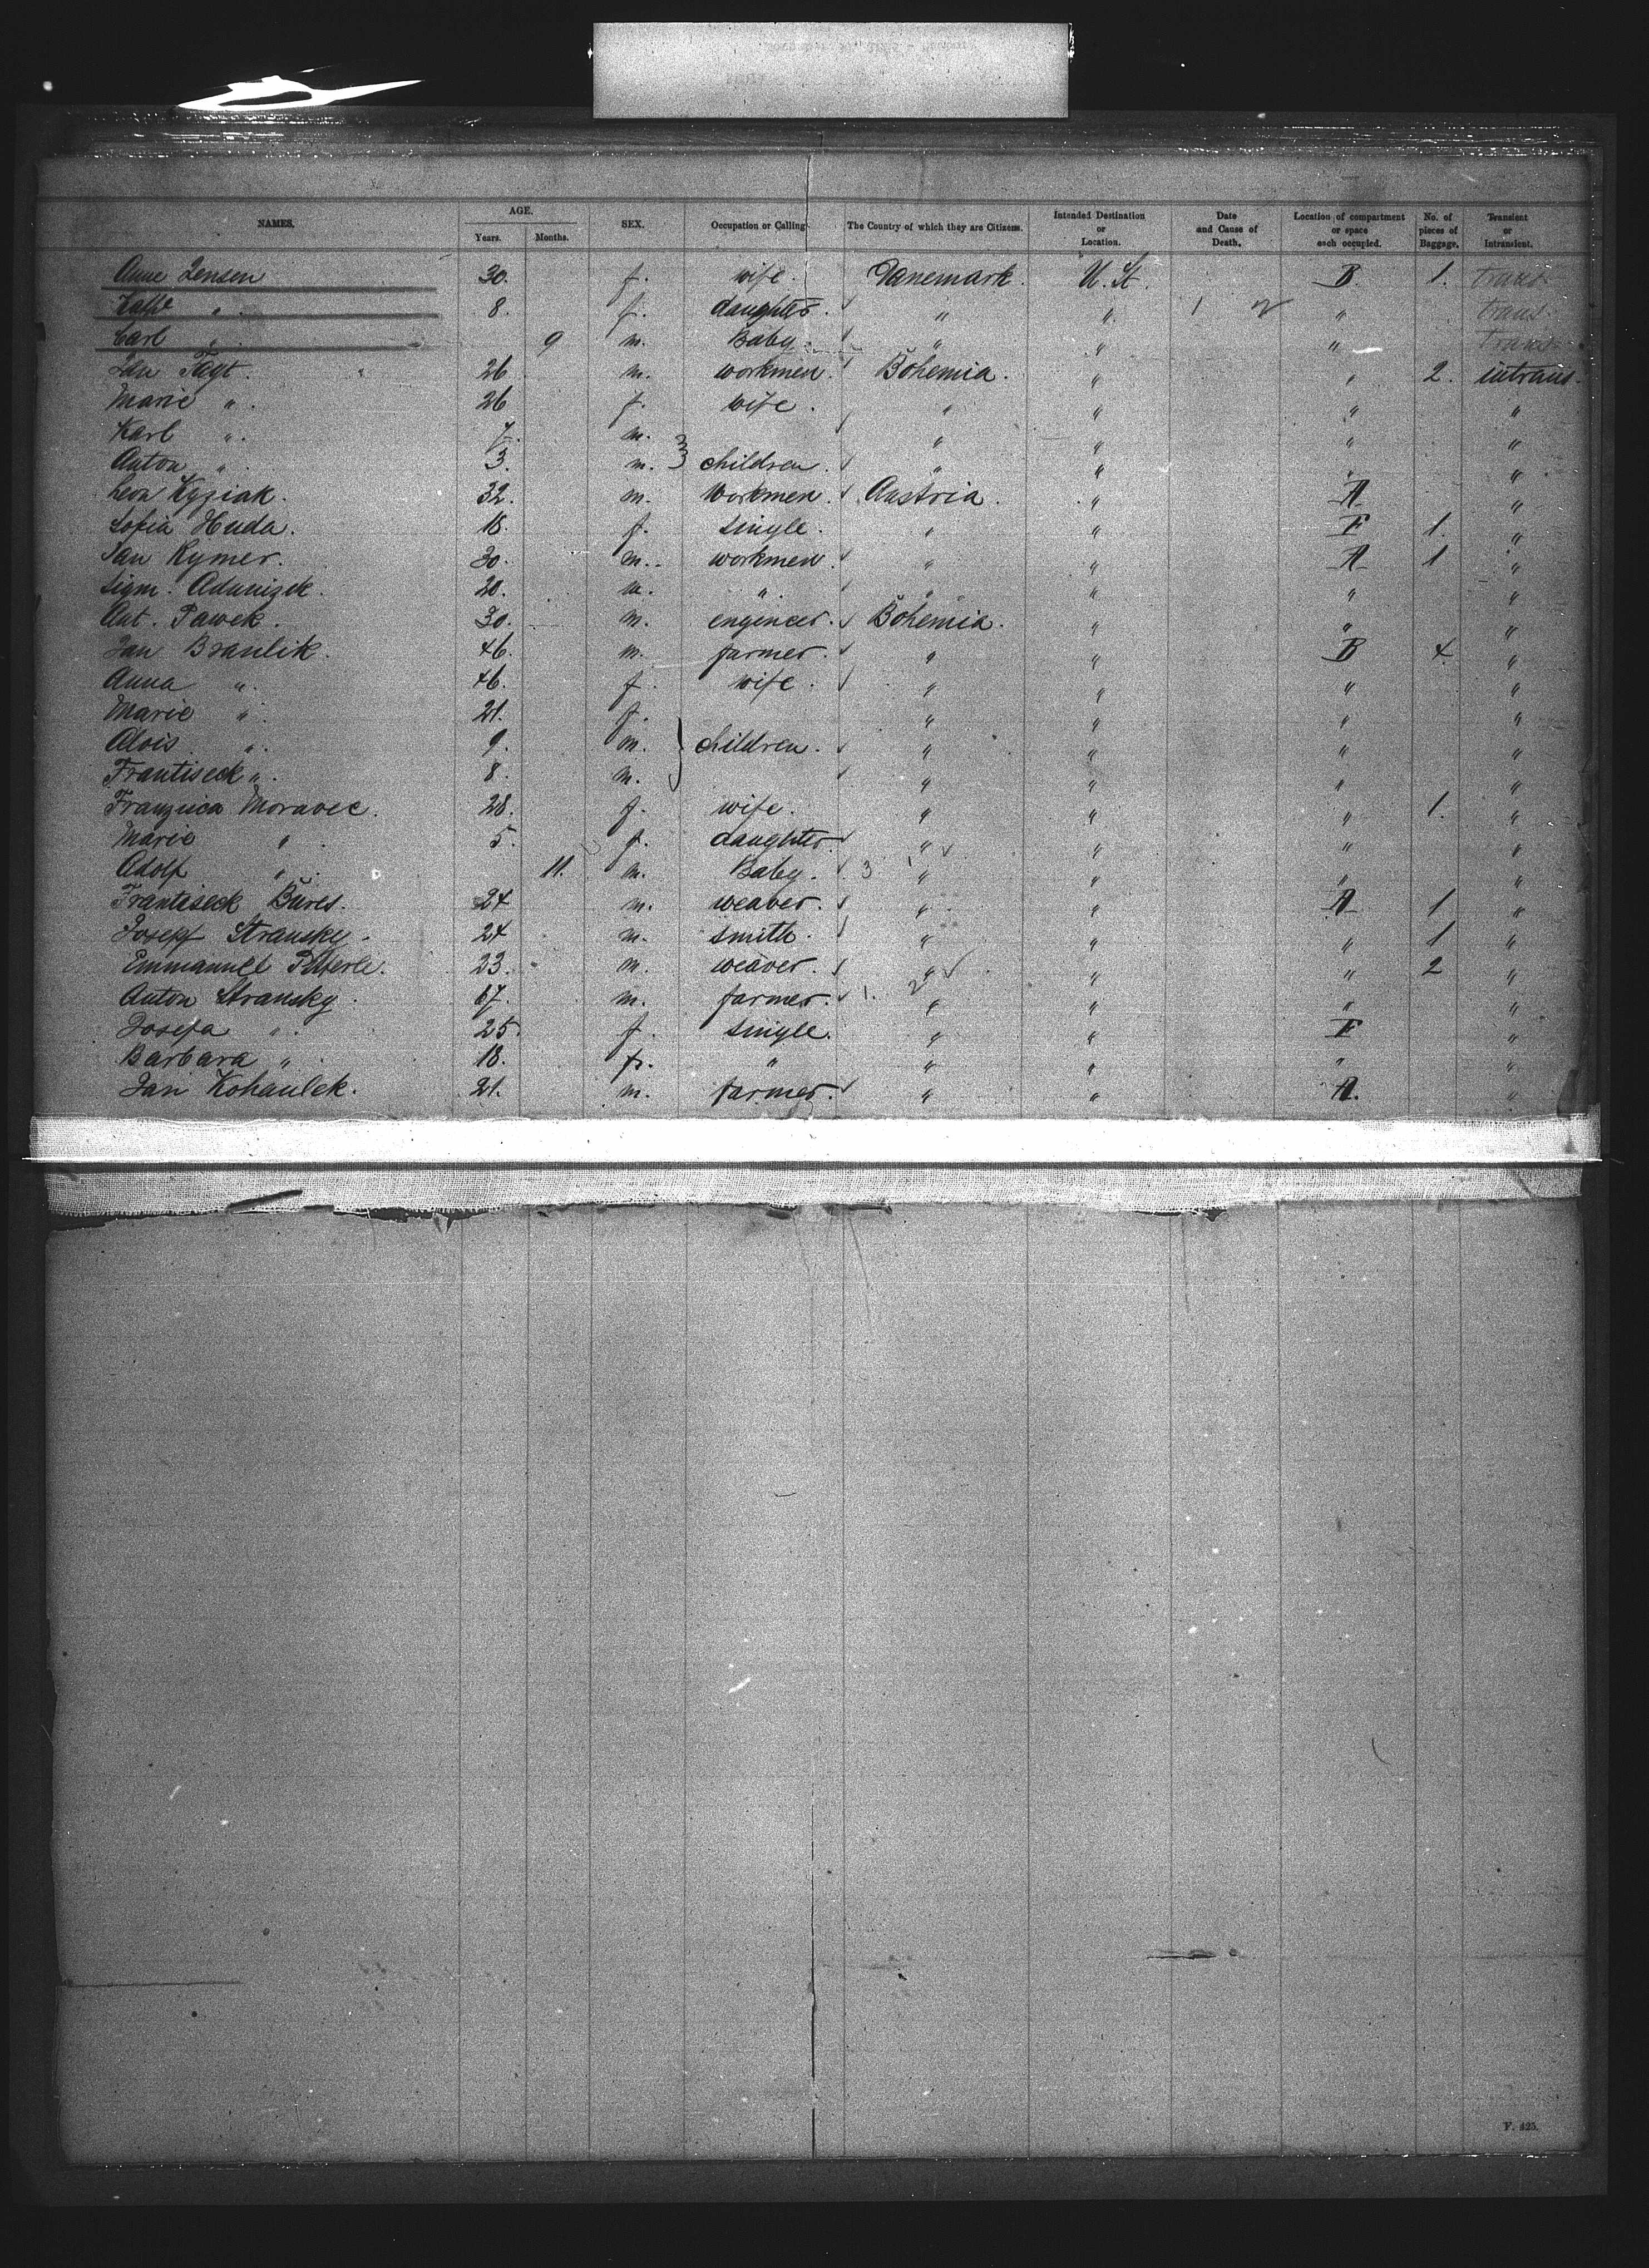 NAMES. AGE. Years. Months. SEX. Occupation or Calling The Country of which they are Citizens. Intended Destination or Location. Date and Cause of Death. Location of compartment or space each occupied. No. of pieces of Baggage. Transient or Intransient.
Anne Jensen 30. f. wife. Danemark. U. St. B. 1. trans.
" 8. f. daughter. " " " trans.
Carl " 9 m. Baby. " " " trans.
Jan 26 m. workmen. Bohemia. " " 2. intrans.
Marie ". 26 f. wife. " " " "
Karl ". 7. m. " " " "
Anton ". 3. m. children. " " " "
Leon Kyziak. 32. m. workmen. Austria. " A "
Sofia Huda. 18. f. single. " " F 1. "
Jan Rymer. 30. m. workmen. " " A 1 "
Sigm. 20. m. " " " " "
Ant. Pawek. 30. m. engineer. Bohemia. " " "
Jan Branlik. 46. m. farmer. " " B 4. "
Anna ". 46. f. wife. " " " "
Marie ". 21. f. " " " "
Alois ". 9. m. children. " " " "
Frantiseck ". 8. m. " " " "
Franziica Moravec. 28. f. wife. " " " 1. "
Marie ". 5. f. daughter. " " " "
Adolf ". 11. m. Baby. 3 " " " "
Frantiseck Bures. 24 m. weaver. " " A 1 "
Josepf Stransky. 24 m. smith. " " " 1 "
Emmanuel 23. m. weaver. " " " 2 "
Anton Stransky. 67. m. farmer. 1. 2 " " " "
Josefa ". 25. f. single. " " F "
Barbara ". 18. f. " " " " "
Jan Kohaulek. 21. m. farmer. " " A. "
F. 425.